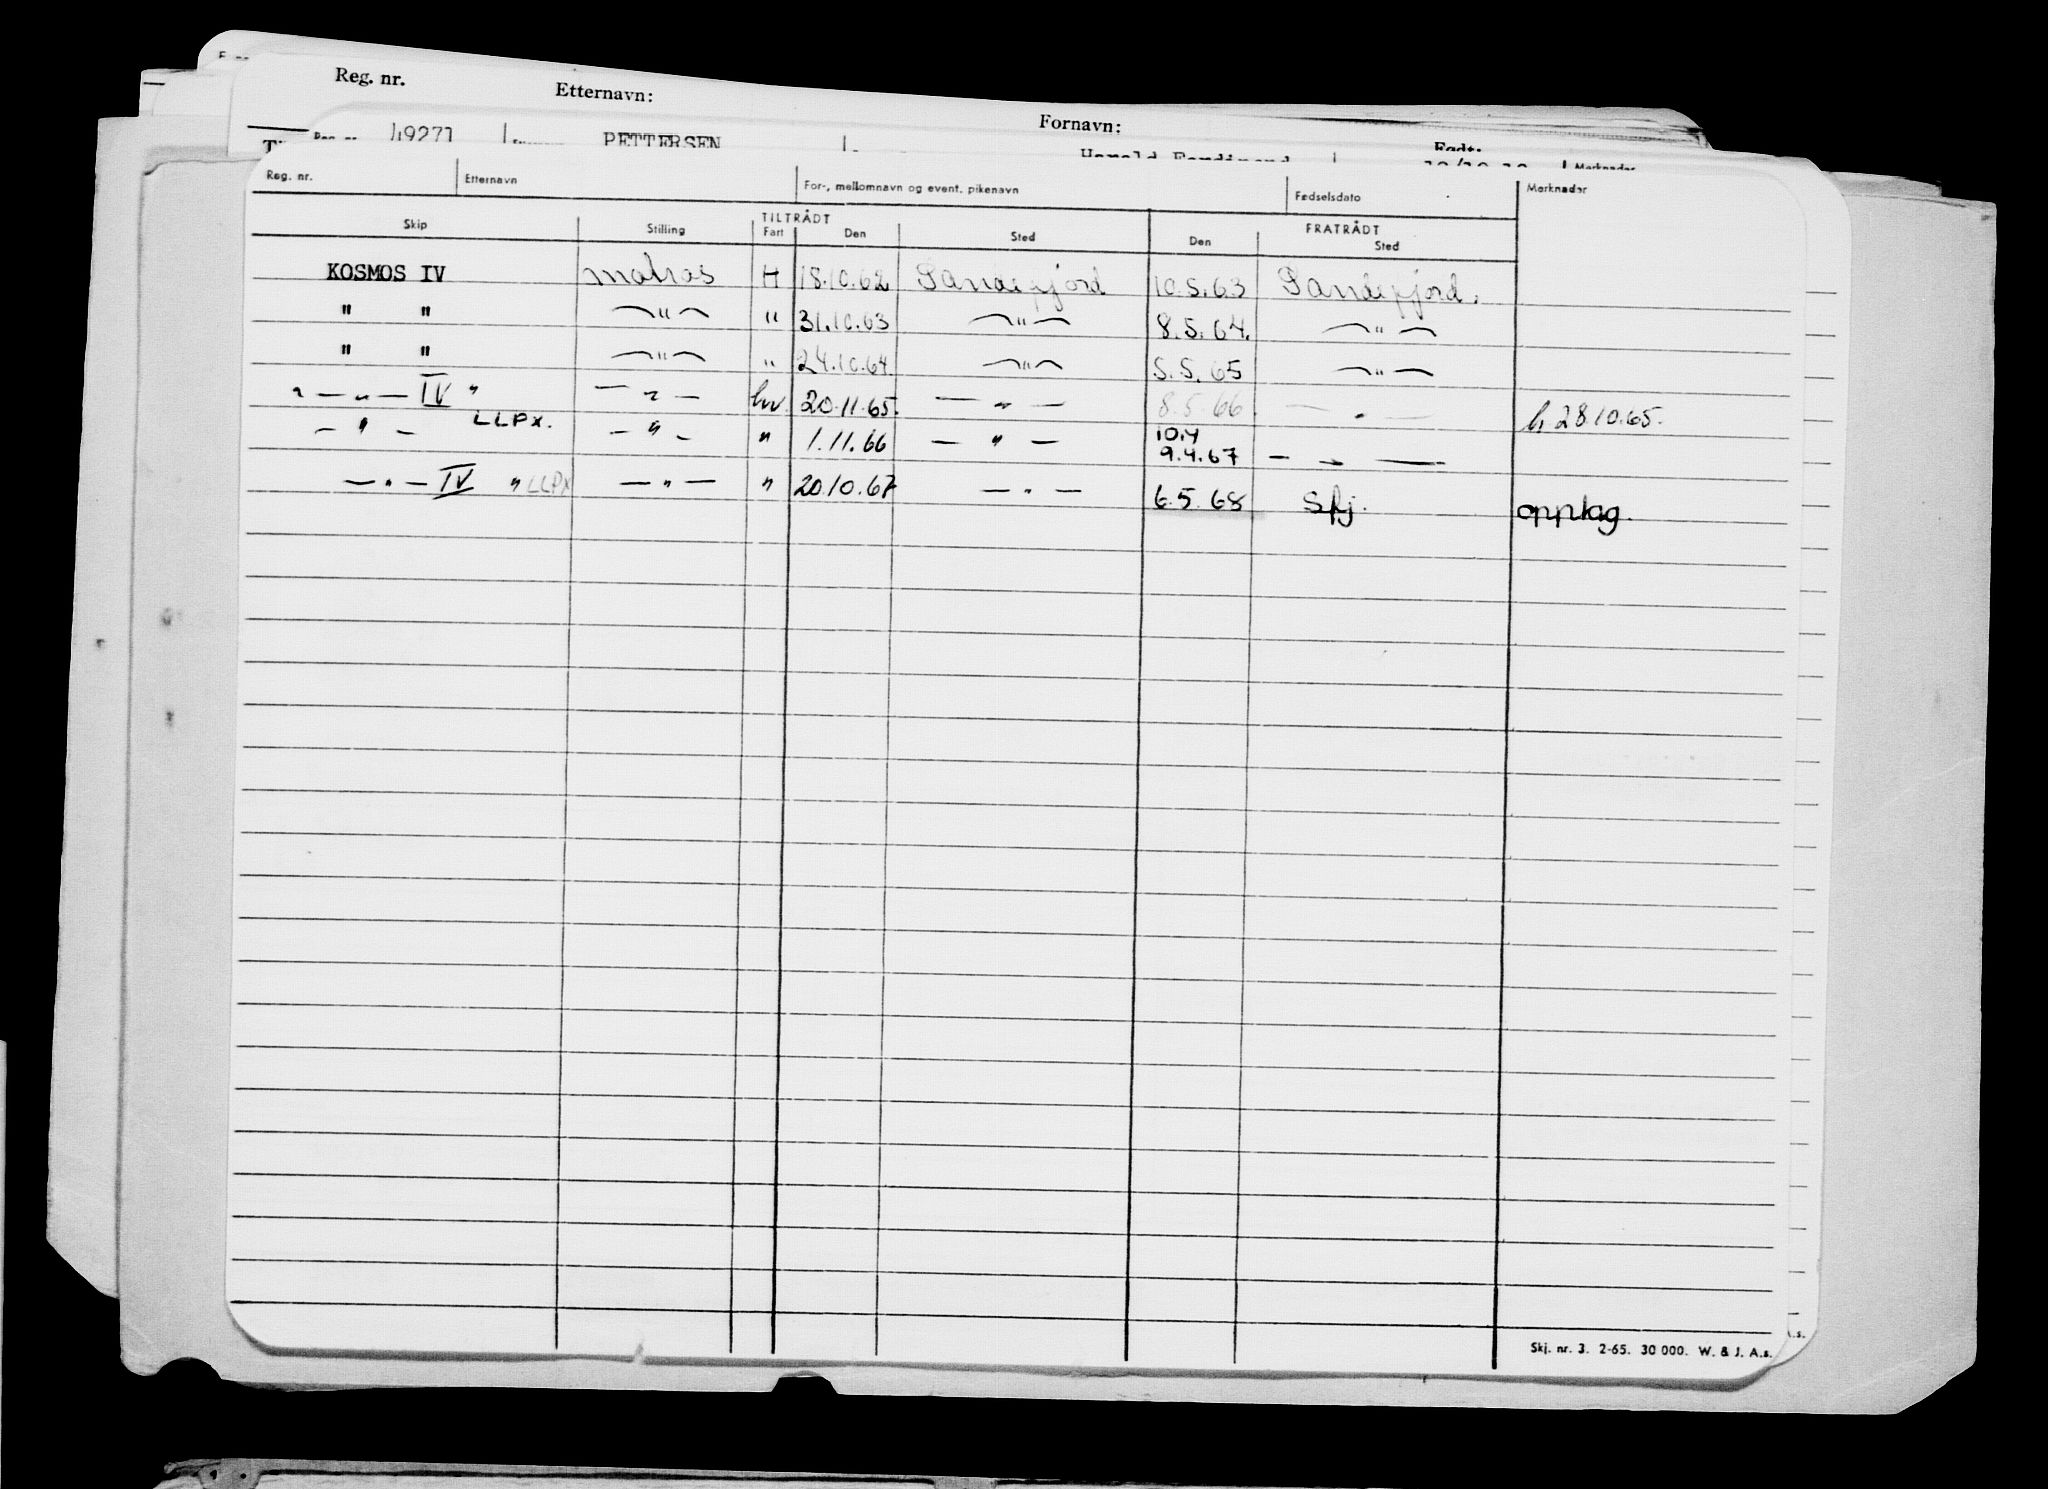 Reg. nr. Etternavn: Fornavn: Født:
49271 PETTERSEN Harald Ferdinand Merknader
Reg. nr. Etternavn For-, mellomnavn og event. pikenavn Fødselsdato Merknader
TILTRÅDT FRATRÅDT
Skip Stilling Fart Den Sted Den Sted
KOSMOS IV matros H 18.10.62 Sandefjord 10.5.63 Sandefjord.
" " —"— " 31.10.63 —"— 8.5.64. —"—
" " —"— " 24.10.64 —"— 5.5.65 —"—
" — " — IV " — " — hv. 20.11.65. — " — 8.5.66. — " — h. 28.10.65.
LLPX.
— " — — " — " 1.11.66 — " — 10.4
9.4.67 — " —
— " — IV " LLPX — " — " 20.10.67 — " — 6.5.68 Sfj. opplag.
Skj. nr. 3. 2-65. 30 000. W. & J. A.s.